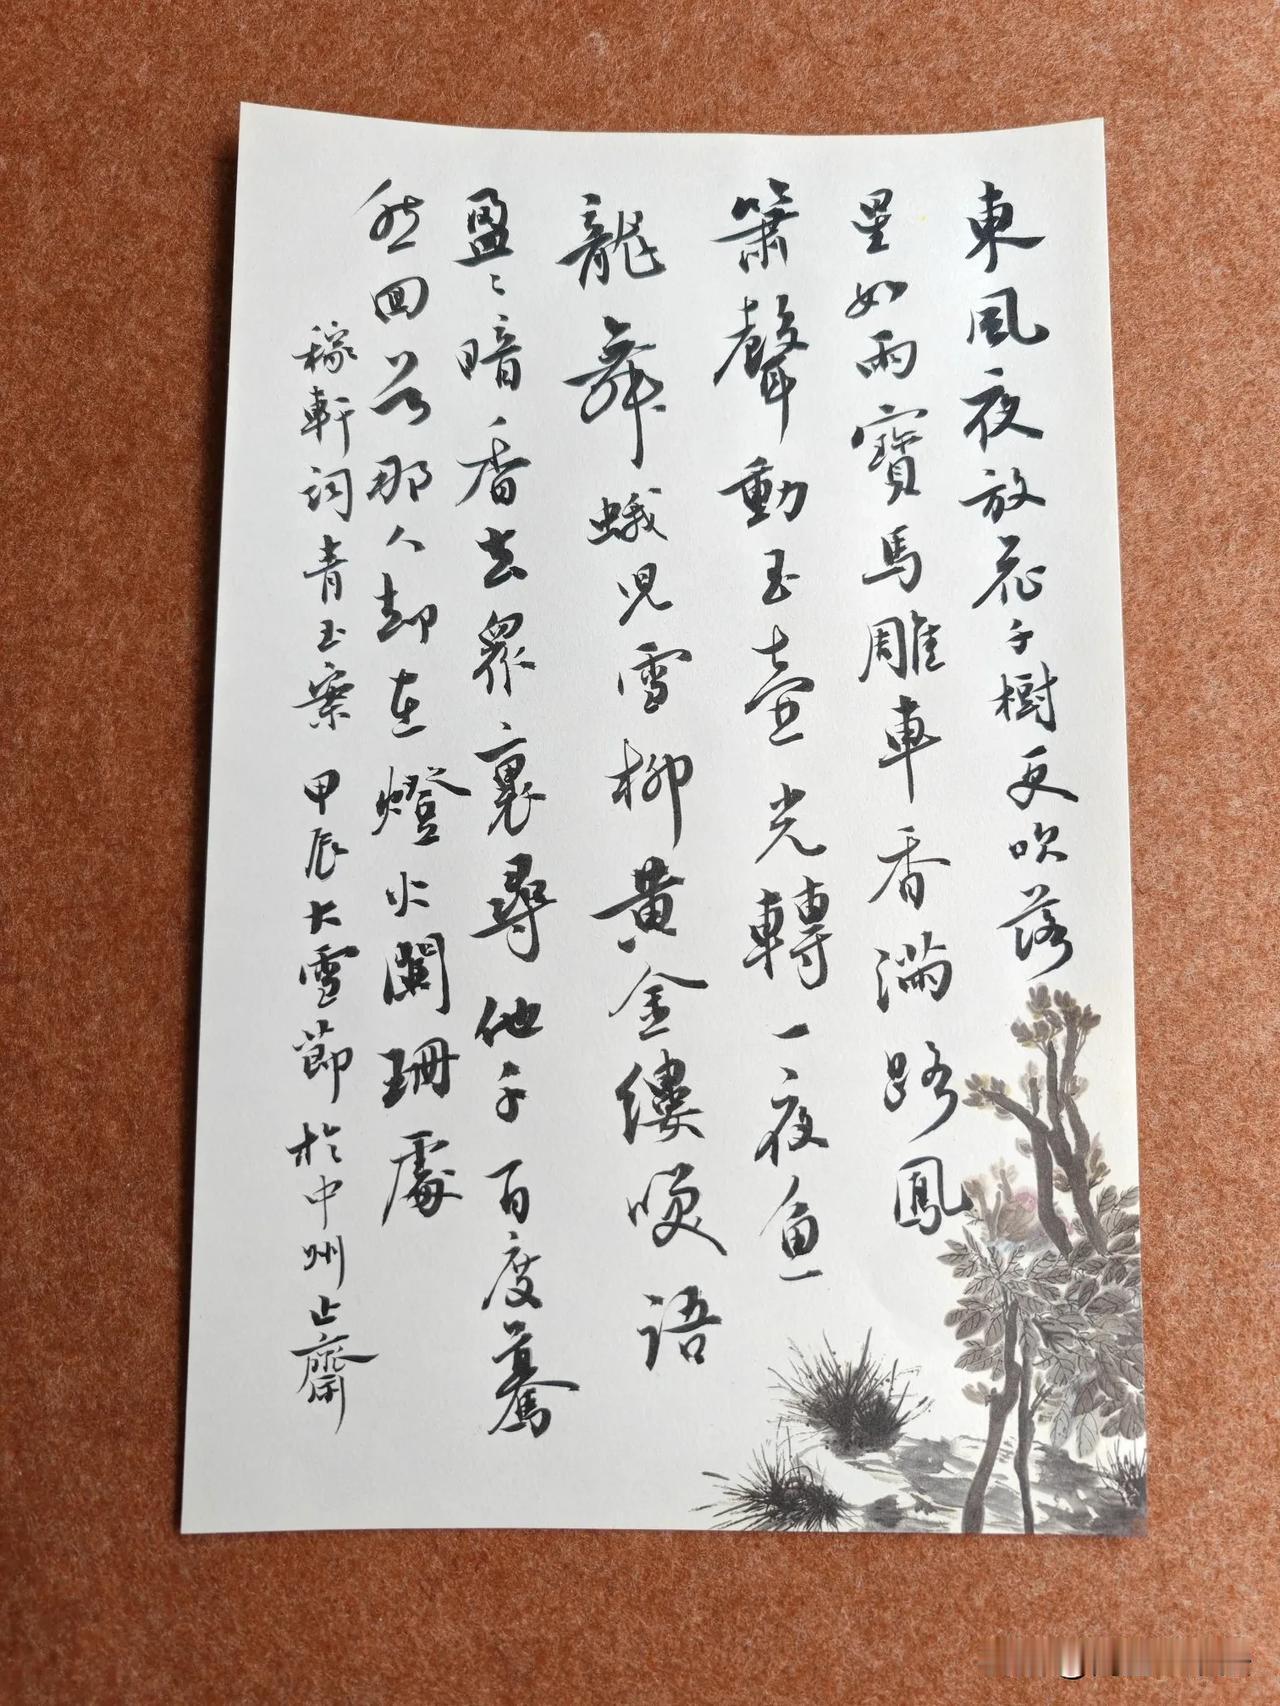 東風夜放花千樹更吹落
星如雨寶馬雕車香滿路鳳
簫聲動玉壺光轉一夜魚
龍舞蛾兒雪柳黃金縷唤語
盈〻暗香去眾裏尋他千百度驀
然回首那人却在燈火闌珊處
稼軒詞青玉案甲辰大雪節於中州止齋